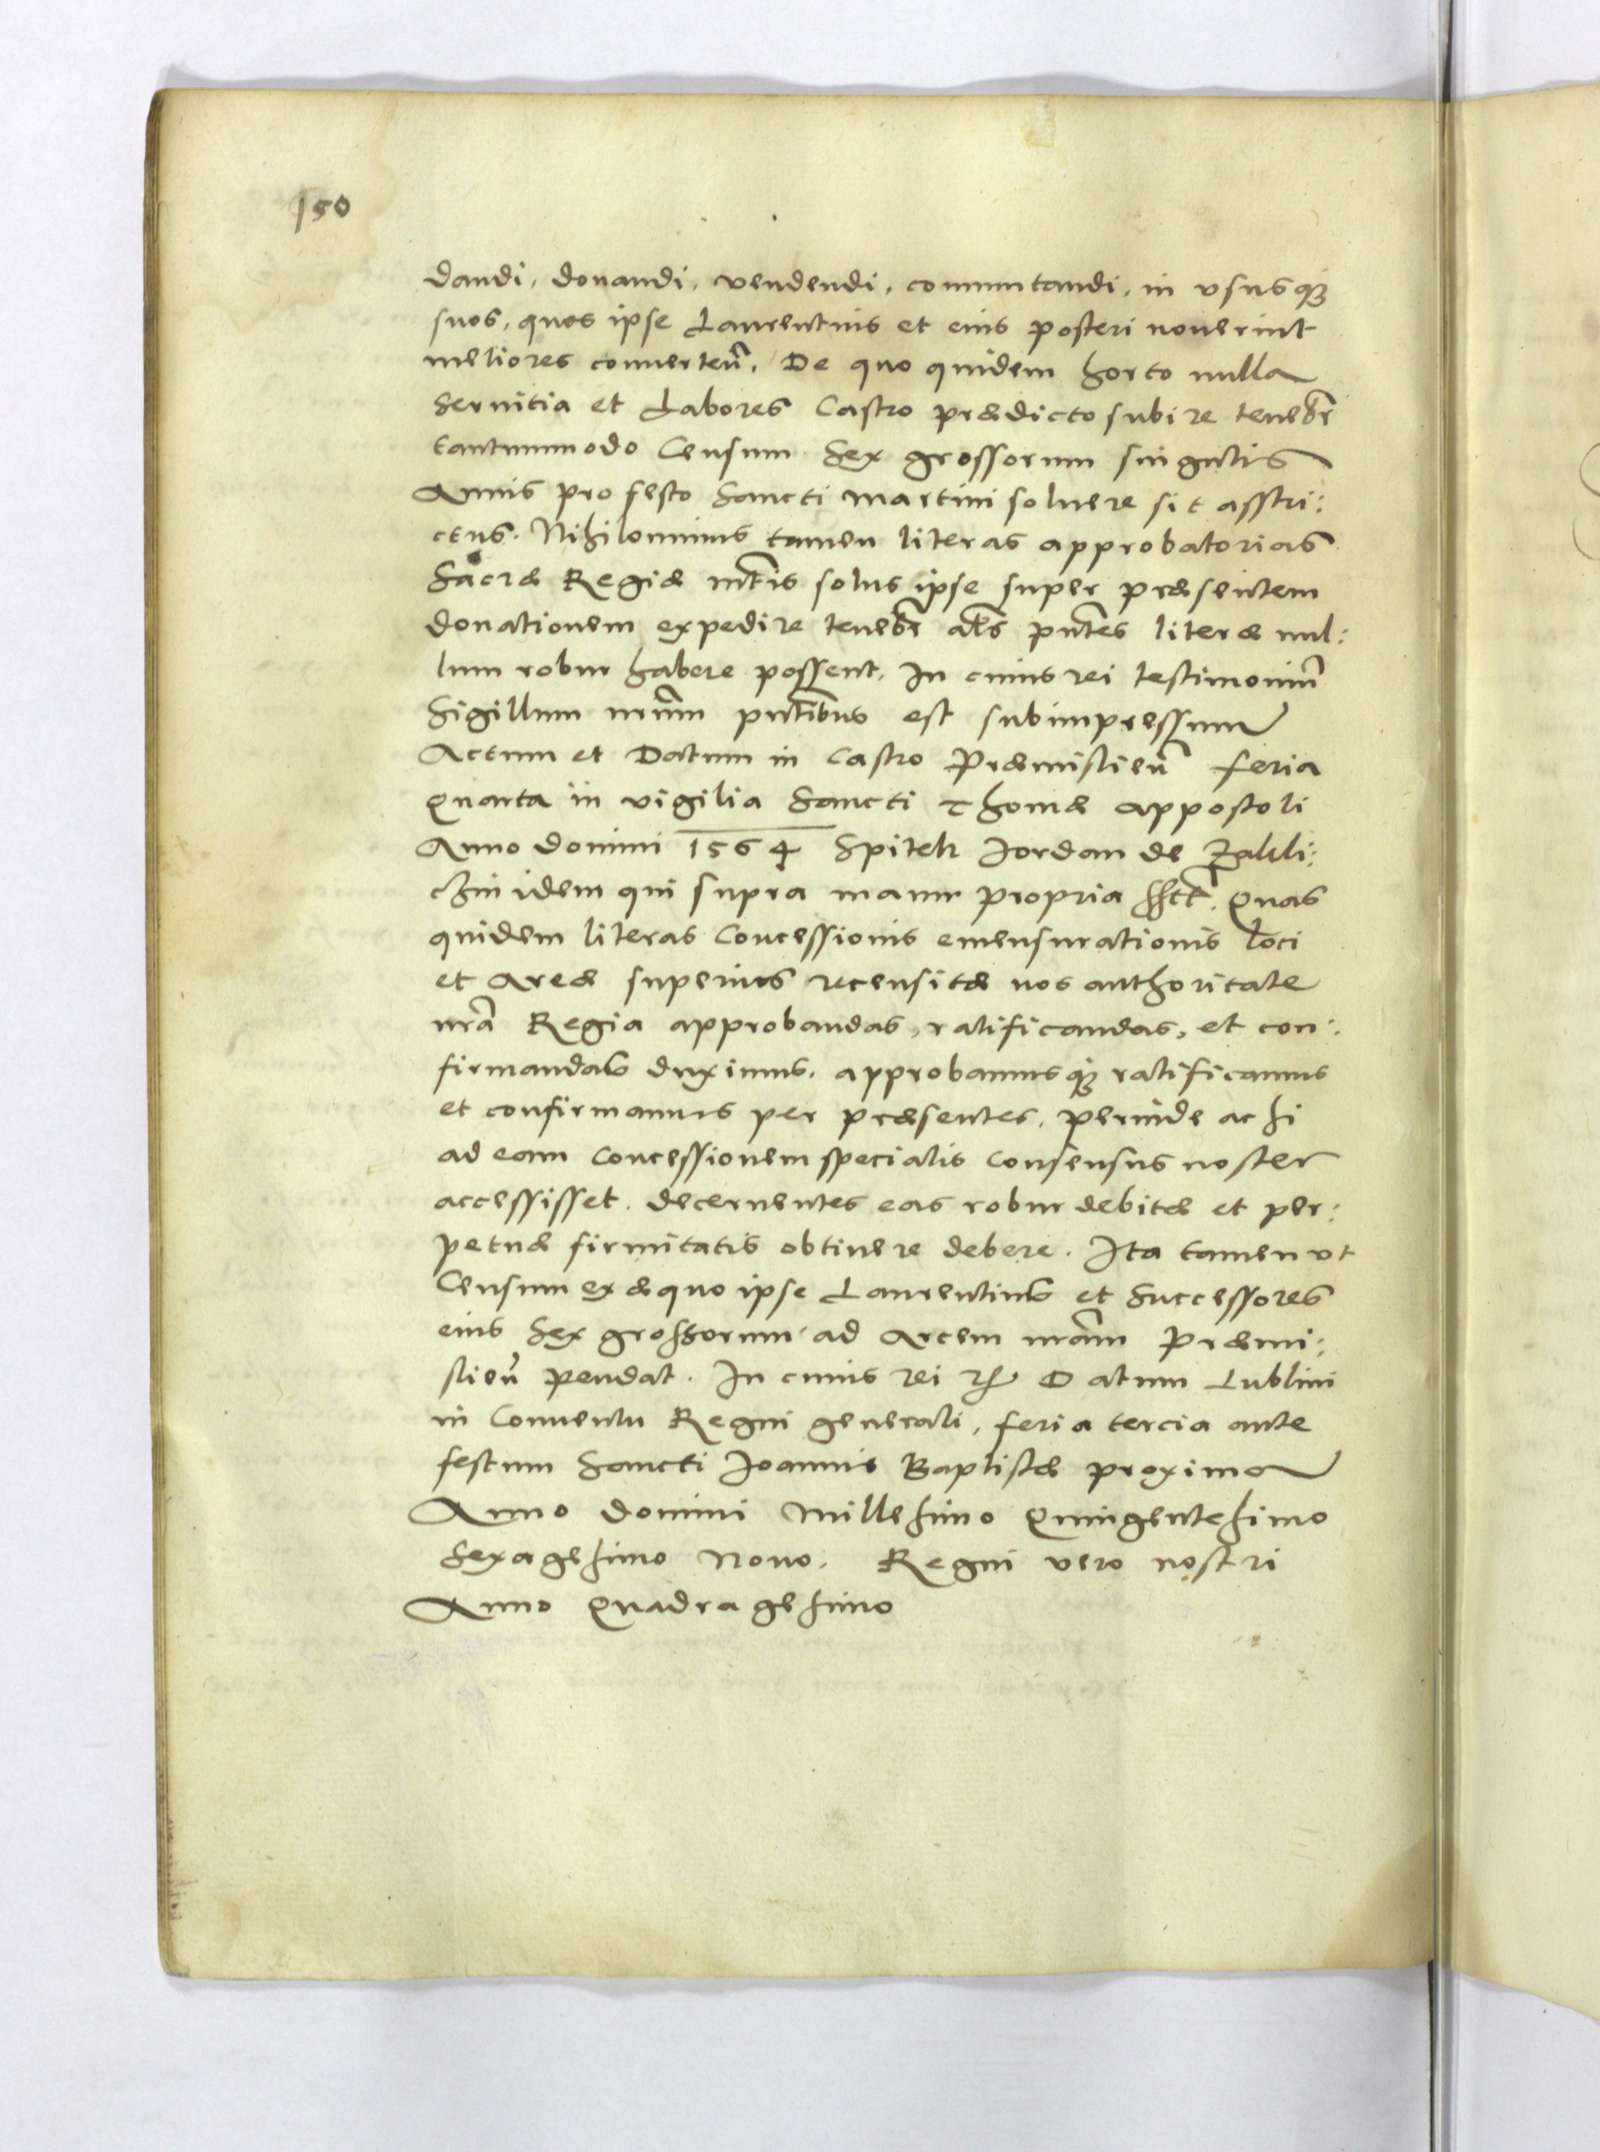 150
dandi, donandi, vendendi, comutandi, in vsusq₃
suos, quos ipse Laurentius et eius posteri nouerint
meliores conuerteñ. De quo quidem horto nulla
Seruitia et Labores Castro prædicto subire tenebr̃
tantummodo Censum Sex grossorum singulis
Annis pro festo Sancti Martini soluere sit asstri:
ctus. Nihilominus tamen literas approbatorias
Sacræ Regiæ mt̃is solus ipse super præsentem
donationem expedire tenebr̃ al̃s pñtes literæ nul:
lum robur habere possent. In cuius rei testimoniũ
Sigillum nr̃um pñtibus est subimpressum
Actum et Datum in Castro Præmislieñ feria
Quarta in vigilia Sancti Thomæ appostoli
Anno domini 1564 Spitek Iordan de Zakli:
czin idem qui supra manu propria sst̃. Quas
quidem literas Concessionis emensurationis loci
et Areæ superius recensitæ nos authoritate
nr̃a Regia approbandas, ratificandas, et con:
firmandas duximus. approbamusq₃ ratificamus
et confirmamus per præsentes. perinde ac si
ad eam Concessionem specialis Consensus noster
accessisset. decernentes eas robur debitæ et per:
petuæ firmitatis obtinere debere. Ita tamen vt
Censum ex æquo ipse Laurentius et Successores
eius Sex grossorum ad Arcem nr̃am Præmi:
slieñ pendat. In cuius rei Datum Lublini
in Conuentu Regni generali, feria tercia ante
festum Sancti Ioannis Baptistæ proximo
Anno domini Millesimo Quingentesimo
Sexagesimo Nono. Regni vero nostri
Anno Quadragesimo